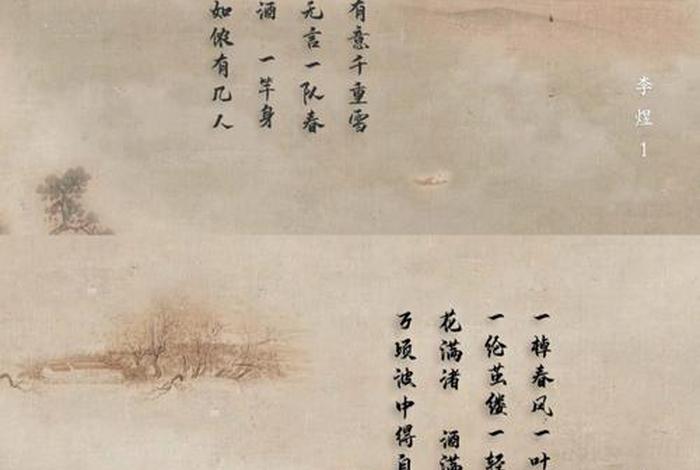 李煜1
有意千重雪
无言一队春
酒 一竿身
如侬有几人
一棹春风一叶
一纶茧缕一轻
花满渚 酒满
万顷波中得自